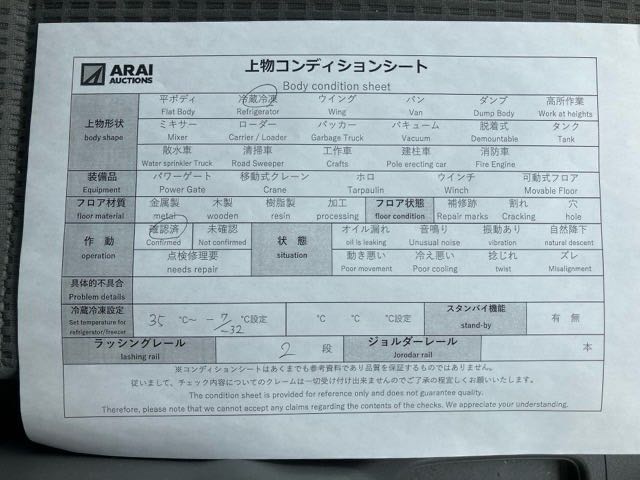 ARAI
AUCTIONS
上物コンディションシート
Body condition sheet
上物形状
body shape
平ボディ 冷蔵冷凍 ウイング バン ダンプ 高所作業
Flat Body Refrigerator Wing Van Dump Body Work at heights
ミキサー ローダー パッカー バキューム 脱着式 タンク
Mixer Carrier / Loader Garbage Truck Vacuum Demountable Tank
散水車 清掃車 工作車 建柱車 消防車
Water sprinkler Truck Road Sweeper Crafts Pole erecting car Fire Engine
装備品 パワーゲート 移動式クレーン ホロ ウインチ 可動式フロア
Equipment Power Gate Crane Tarpaulin Winch Movable Floor
フロア材質 金属製 木製 樹脂製 加工 フロア状態 補修跡 割れ 穴
floor material metal wooden resin processing floor condition Repair marks Cracking hole
作動
operation
確認済 未確認
Confirmed Not confirmed
点検修理要
needs repair
状態
situation
オイル漏れ 音鳴り 振動あり 自然降下
oil is leaking Unusual noise vibration natural descent
動き悪い 冷え悪い 捻じれ ズレ
Poor movement Poor cooling twist Misalignment
具体的不具合
Problem details
冷蔵冷凍設定
Set temperature for
refrigerator/freezer
35 ℃~ -7 ℃設定
-32
℃ ℃ ℃設定
スタンバイ機能
stand-by
有 無
ラッシングレール
lashing rail
2 段
ジョルダーレール
Jorodar rail
本
※コンディションシートはあくまでも参考資料であり品質を保証するものではありません。
従いまして、チェック内容についてのクレームは一切受け付け出来ませんのでご了承の程宜しくお願いいたします。
The condition sheet is provided for reference only and does not guarantee quality.
Therefore, please note that we cannot accept any claims regarding the contents of the checks. We appreciate your understanding.